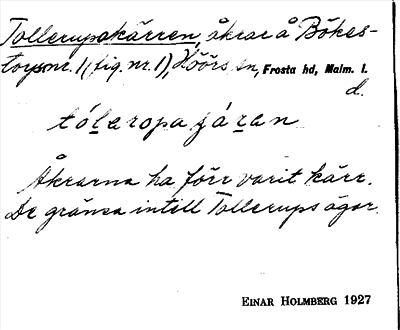 Tollerupakärren, åkrar å Bökes-
torps nr. 1, (fig. nr. 1), Höörs sn, Frosta hd, Malm. l.
d.
tóleropa járan
Åkrarna ha förr varit kärr.
De gränsa intill Tollerups ägor.
EINAR HOLMBERG 1927